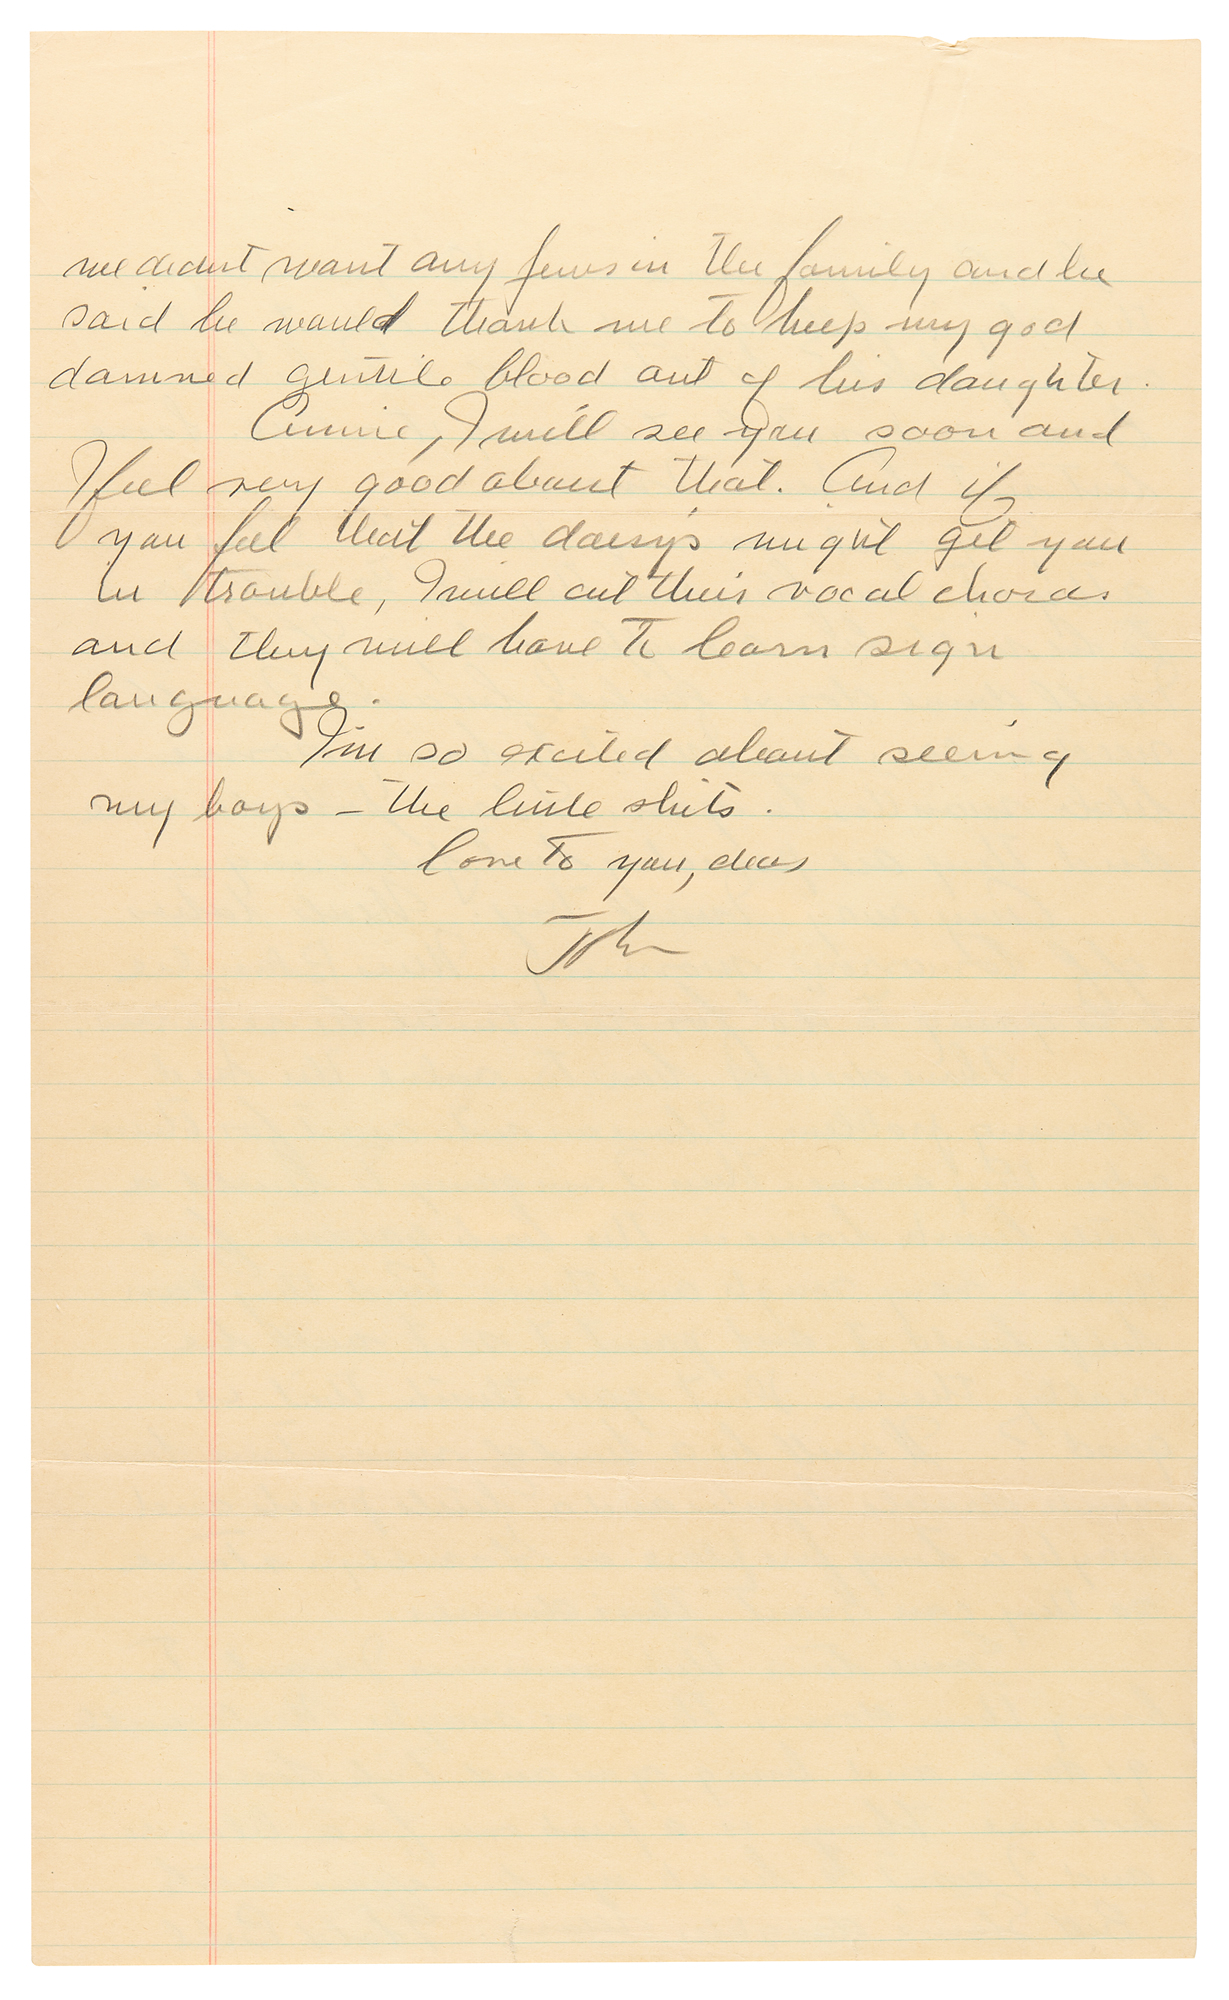 we didnt want any jews in the family and he
said he would thank me to keep my god
damned gentile blood out of his daughter.
Annie, I will see you soon and
I feel very good about that. And if
you feel that the daisy's might get you
in trouble, I will cut their vocal chords
and they will have to learn sign
language.
I'm so excited about seeing
my boys – the little shits.
love to you, dear
John